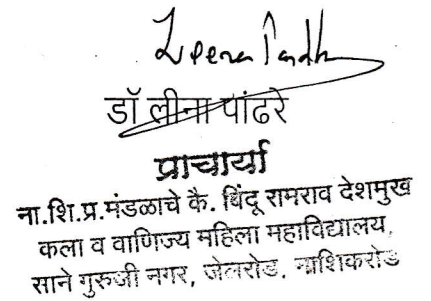 Leena Pandh
डॉ लीना पांढरे
प्राचार्या
ना.शि.प्र.मंडळाचे कै. बिंदू रामराव देशमुख
कला व वाणिज्य महिला महाविद्यालय,
साने गुरुजी नगर, जेलरोड, नाशिकरोड